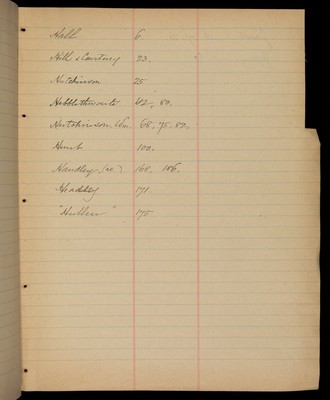 Hall 6.
Hill & Courtney 23.
Hutchinson 25
Hebblethwaite 42, 80.
Hutchinson, Wm. 68, 75, 82,
Hunt 100.
Handley, 168, 186,
Headley 171.
"Hullen" 175